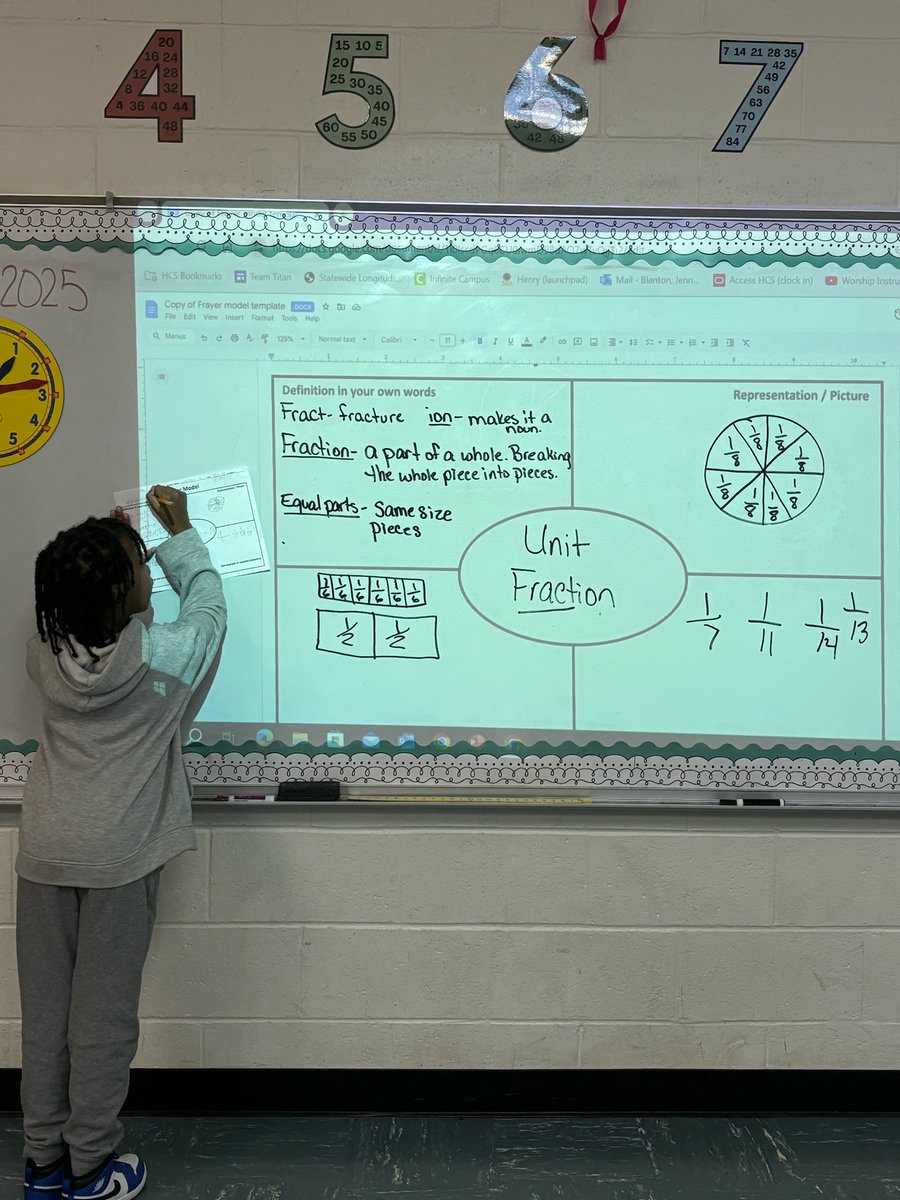 4
20
16 24
12 28
8 32
4 36 40 44
48
5
15 10 5
20
25 30 35
40
45
60 55 50
6
42 48
7
7 14 21 28 35
42
49
56
63
70
77
84
2025
1
2
3
4
5
HCS Bookmarks Team Titan Statewide Longitudi... Infinite Campus Henry (launchpad) Mail - Blanton, Jenn... Access HCS (clock in) Worship Instru
Copy of Frayer model template .DOCX
File Edit View Insert Format Tools Help
Menus 125% Normal text Calibri 11 B I U A
Definition in your own words
Fract- fracture ion- makes it a
noun.
Fraction- a part of a whole. Breaking
the whole piece into pieces.
Equal parts- Same size
pieces
Representation / Picture
1/8 1/8 1/8 1/8 1/8 1/8 1/8 1/8
Unit
Fraction
1/6 1/6 1/6 1/6 1/6 1/6
1/2 1/2
1/7 1/11 1/14 1/13